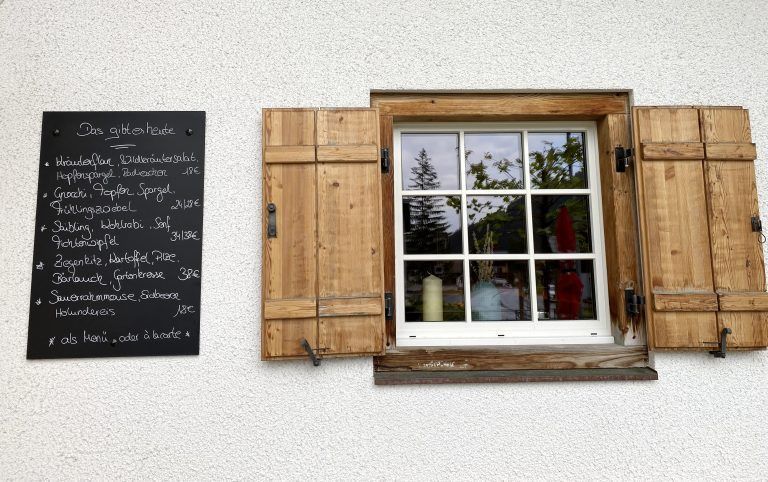 Das gibt es heute
* Kräuterflan, Wildkräutersalat,
Hopfenspargel, Radieschen 18€
* Gnocchi, Topfen, Spargel,
Frühlingszwiebel 24/28€
* Saibling, Kohlrabi, Senf,
Fichtenwipfel 34/38€
* Ziegenkitz, Kartoffel, Pilze,
Bärlauch, Gartenkresse 38€
* Sauerrahmmousse, Erdbeere
Holundereis 18€
* als Menü oder à la carte *